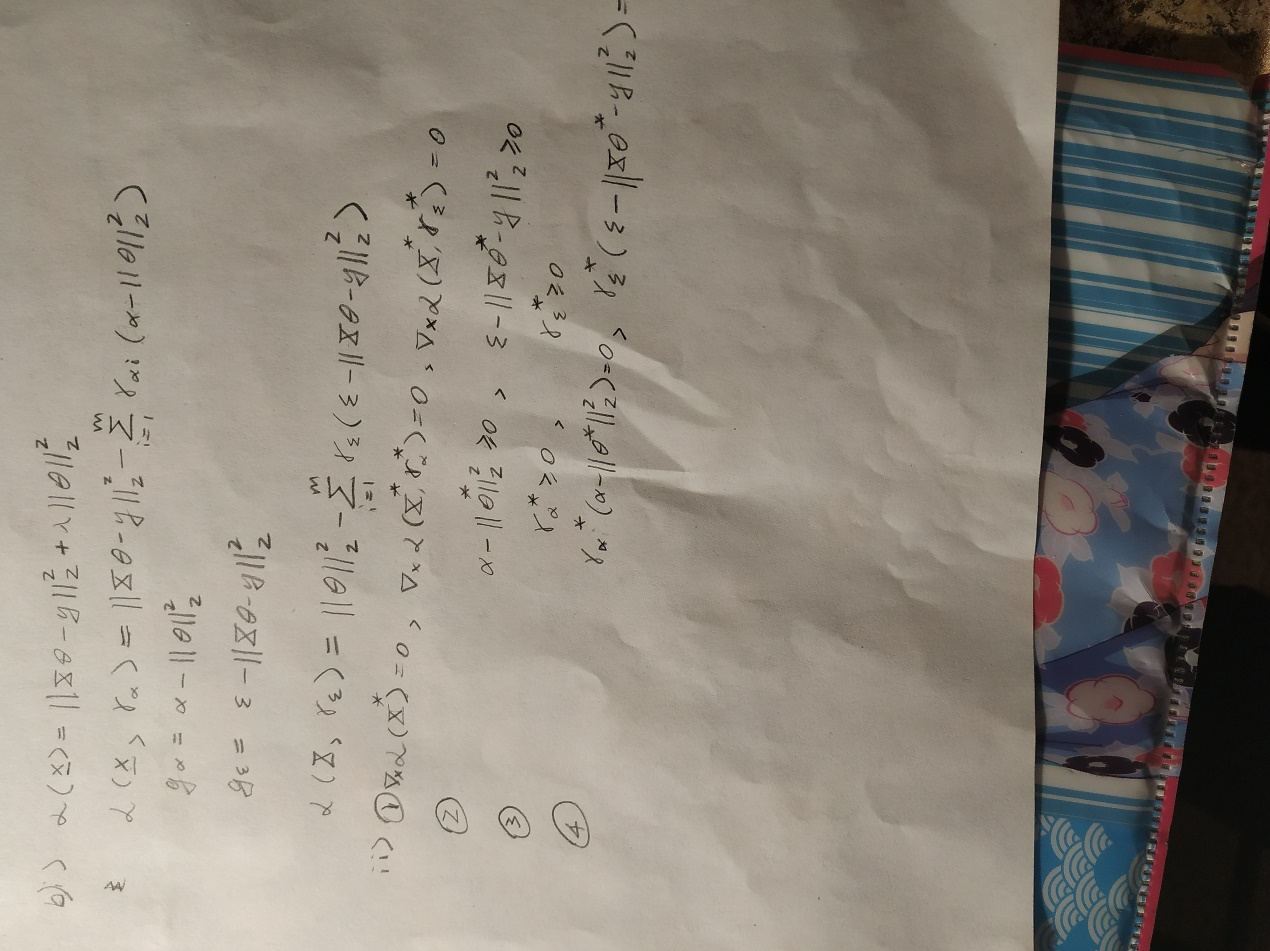 b)i) α(x) = ||Xθ-y||₂² + λ||θ||₂²
α(x, γ_α) = ||Xθ-y||₂² - Σ_{i=1}^{m} γ_{αi} (α-||θ||₂²)
g_α = α - ||θ||₂²
g_ε = ε - ||Xθ-y||₂²
α(X, γ_ε) = ||θ||₂² - Σ_{i=1}^{m} γ_ε (ε-||Xθ-y||₂²)
ii) ① ∇ₓα(X*)=0, ∇ₓα(X*, γ_α*)=0, ∇ₓα(X*, γ_ε*)=0
② α-||θ*||₂² ≥0, ε-||Xθ*-y||₂² ≥0
③ γ_α* ≥0, γ_ε* ≥0
④ γ_{αi}* (α-||θ*||₂²)=0, γ_ε* (ε-||Xθ*-y||₂²)=